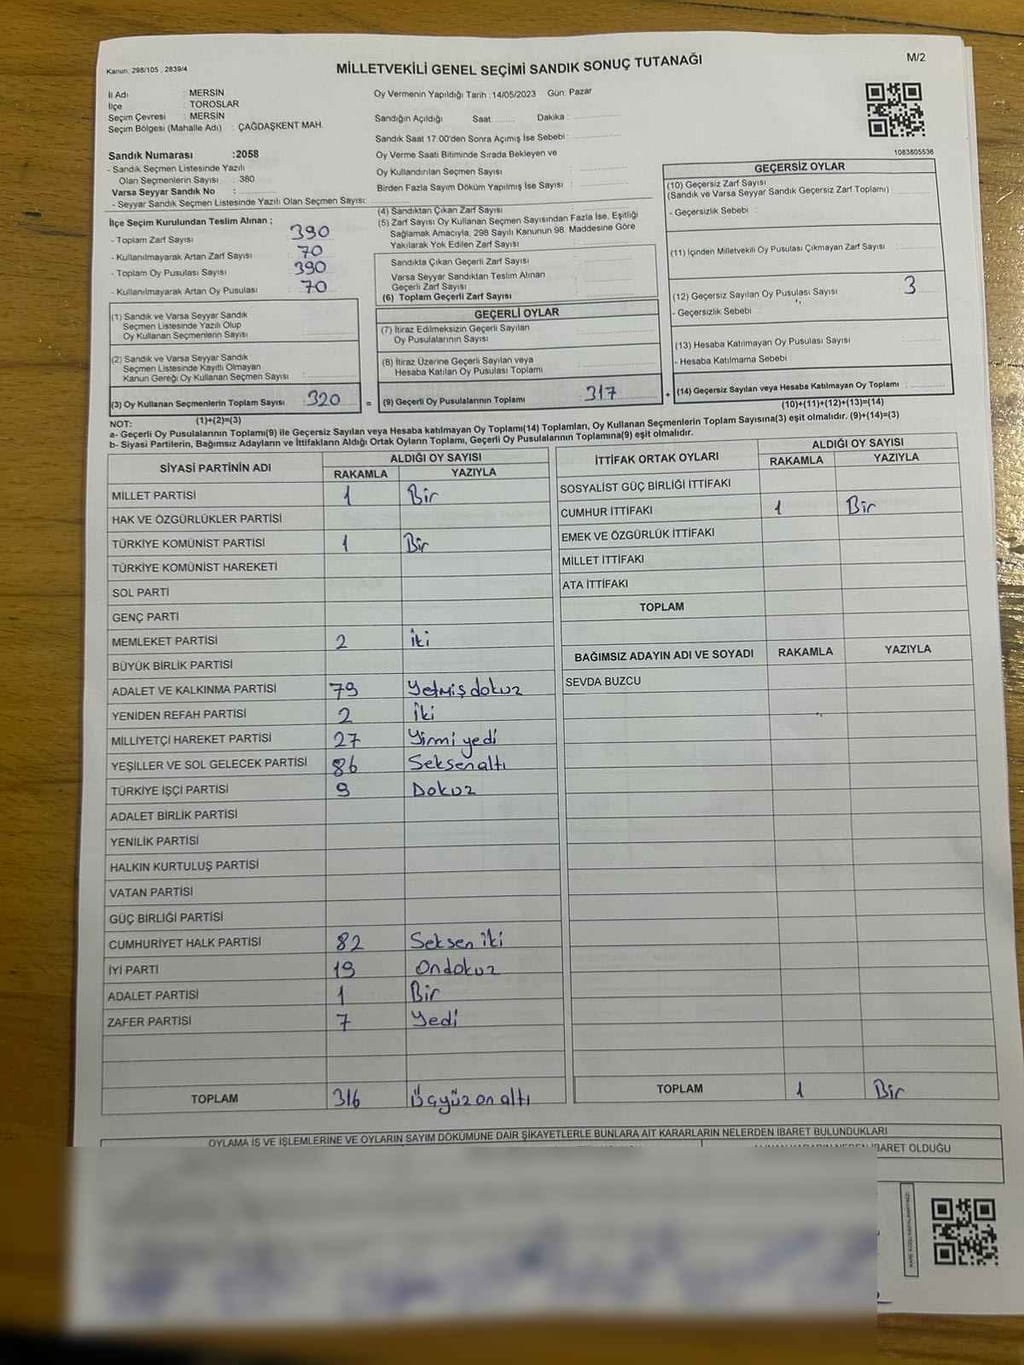 Kanun, 298/105 , 2839/4
MİLLETVEKİLİ GENEL SEÇİMİ SANDIK SONUÇ TUTANAĞI
M/2
İl Adı : MERSİN
İlçe : TOROSLAR
Seçim Çevresi : MERSİN
Seçim Bölgesi (Mahalle Adı) : ÇAĞDAŞKENT MAH.
Sandık Numarası :2058
- Sandık Seçmen Listesinde Yazılı
Olan Seçmenlerin Sayısı : 380
Varsa Seyyar Sandık No :
- Seyyar Sandık Seçmen Listesinde Yazılı Olan Seçmen Sayısı:
Oy Vermenin Yapıldığı Tarih :14/05/2023 Gün: Pazar
Sandığın Açıldığı Saat Dakika
Sandık Saat 17:00'den Sonra Açımış İse Sebebi :
Oy Verme Saati Bitiminde Sırada Bekleyen ve
Oy Kullandırılan Seçmen Sayısı :
Birden Fazla Sayım Döküm Yapılmış İse Sayısı :
1083805536
İlçe Seçim Kurulundan Teslim Alınan ;
- Toplam Zarf Sayısı 390
- Kullanılmayarak Artan Zarf Sayısı 70
- Toplam Oy Pusulası Sayısı 390
- Kullanılmayarak Artan Oy Pusulası 70
(1) Sandık ve Varsa Seyyar Sandık
Seçmen Listesinde Yazılı Olup
Oy Kullanan Seçmenlerin Sayısı :
(2) Sandık ve Varsa Seyyar Sandık
Seçmen Listesinde Kayıtlı Olmayan
Kanun Gereği Oy Kullanan Seçmen Sayısı :
(3) Oy Kullanan Seçmenlerin Toplam Sayısı 320
(1)+(2)=(3)
(4) Sandıktan Çıkan Zarf Sayısı :
(5) Zarf Sayısı Oy Kullanan Seçmen Sayısından Fazla İse, Eşitliği
Sağlamak Amacıyla, 298 Sayılı Kanunun 98. Maddesine Göre
Yakılarak Yok Edilen Zarf Sayısı :
Sandıkta Çıkan Geçerli Zarf Sayısı
Varsa Seyyar Sandıktan Teslim Alınan
Geçerli Zarf Sayısı
(6) Toplam Geçerli Zarf Sayısı
GEÇERLİ OYLAR
(7) İtiraz Edilmeksizin Geçerli Sayılan
Oy Pusulalarının Sayısı
(8) İtiraz Üzerine Geçerli Sayılan veya
Hesaba Katılan Oy Pusulası Toplamı
= (9) Geçerli Oy Pusulalarının Toplamı 317 +
GEÇERSİZ OYLAR
(10) Geçersiz Zarf Sayısı
(Sandık ve Varsa Seyyar Sandık Geçersiz Zarf Toplamı)
- Geçersizlik Sebebi :
(11) İçinden Milletvekili Oy Pusulası Çıkmayan Zarf Sayısı
(12) Geçersiz Sayılan Oy Pusulası Sayısı 3
- Geçersizlik Sebebi
(13) Hesaba Katılmayan Oy Pusulası Sayısı
- Hesaba Katılmama Sebebi
(14) Geçersiz Sayılan veya Hesaba Katılmayan Oy Toplamı
(10)+(11)+(12)+(13)=(14)
NOT:
a- Geçerli Oy Pusulalarının Toplamı(9) ile Geçersiz Sayılan veya Hesaba katılmayan Oy Toplam(14) Toplamları, Oy Kullanan Seçmenlerin Toplam Sayısına(3) eşit olmalıdır. (9)+(14)=(3)
b- Siyasi Partilerin, Bağımsız Adayların ve İttifakların Aldığı Ortak Oyların Toplamı, Geçerli Oy Pusulalarının Toplamına(9) eşit olmalıdır.
SİYASİ PARTİNİN ADI ALDIĞI OY SAYISI
RAKAMLA YAZIYLA
MİLLET PARTİSİ 1 Bir
HAK VE ÖZGÜRLÜKLER PARTİSİ
TÜRKİYE KOMÜNİST PARTİSİ 1 Bir
TÜRKİYE KOMÜNİST HAREKETİ
SOL PARTİ
GENÇ PARTİ
MEMLEKET PARTİSİ 2 iki
BÜYÜK BİRLİK PARTİSİ
ADALET VE KALKINMA PARTİSİ 79 Yetmiş dokuz
YENİDEN REFAH PARTİSİ 2 iki
MİLLİYETÇİ HAREKET PARTİSİ 27 Yirmi yedi
YEŞİLLER VE SOL GELECEK PARTİSİ 86 Seksen altı
TÜRKİYE İŞÇİ PARTİSİ 9 Dokuz
ADALET BİRLİK PARTİSİ
YENİLİK PARTİSİ
HALKIN KURTULUŞ PARTİSİ
VATAN PARTİSİ
GÜÇ BİRLİĞİ PARTİSİ
CUMHURİYET HALK PARTİSİ 82 Seksen iki
İYİ PARTİ 19 Ondokuz
ADALET PARTİSİ 1 Bir
ZAFER PARTİSİ 7 Yedi
TOPLAM 316 Üçyüz on altı
İTTİFAK ORTAK OYLARI ALDIĞI OY SAYISI
RAKAMLA YAZIYLA
SOSYALİST GÜÇ BİRLİĞİ İTTİFAKI
CUMHUR İTTİFAKI 1 Bir
EMEK VE ÖZGÜRLÜK İTTİFAKI
MİLLET İTTİFAKI
ATA İTTİFAKI
TOPLAM
BAĞIMSIZ ADAYIN ADI VE SOYADI RAKAMLA YAZIYLA
SEVDA BUZCU
TOPLAM 1 Bir
OYLAMA İŞ VE İŞLEMLERİNE VE OYLARIN SAYIM DÖKÜMÜNE DAİR ŞİKAYETLERLE BUNLARA AİT KARARLARIN NELERDEN İBARET BULUNDUKLARI
İBARET OLDUĞU